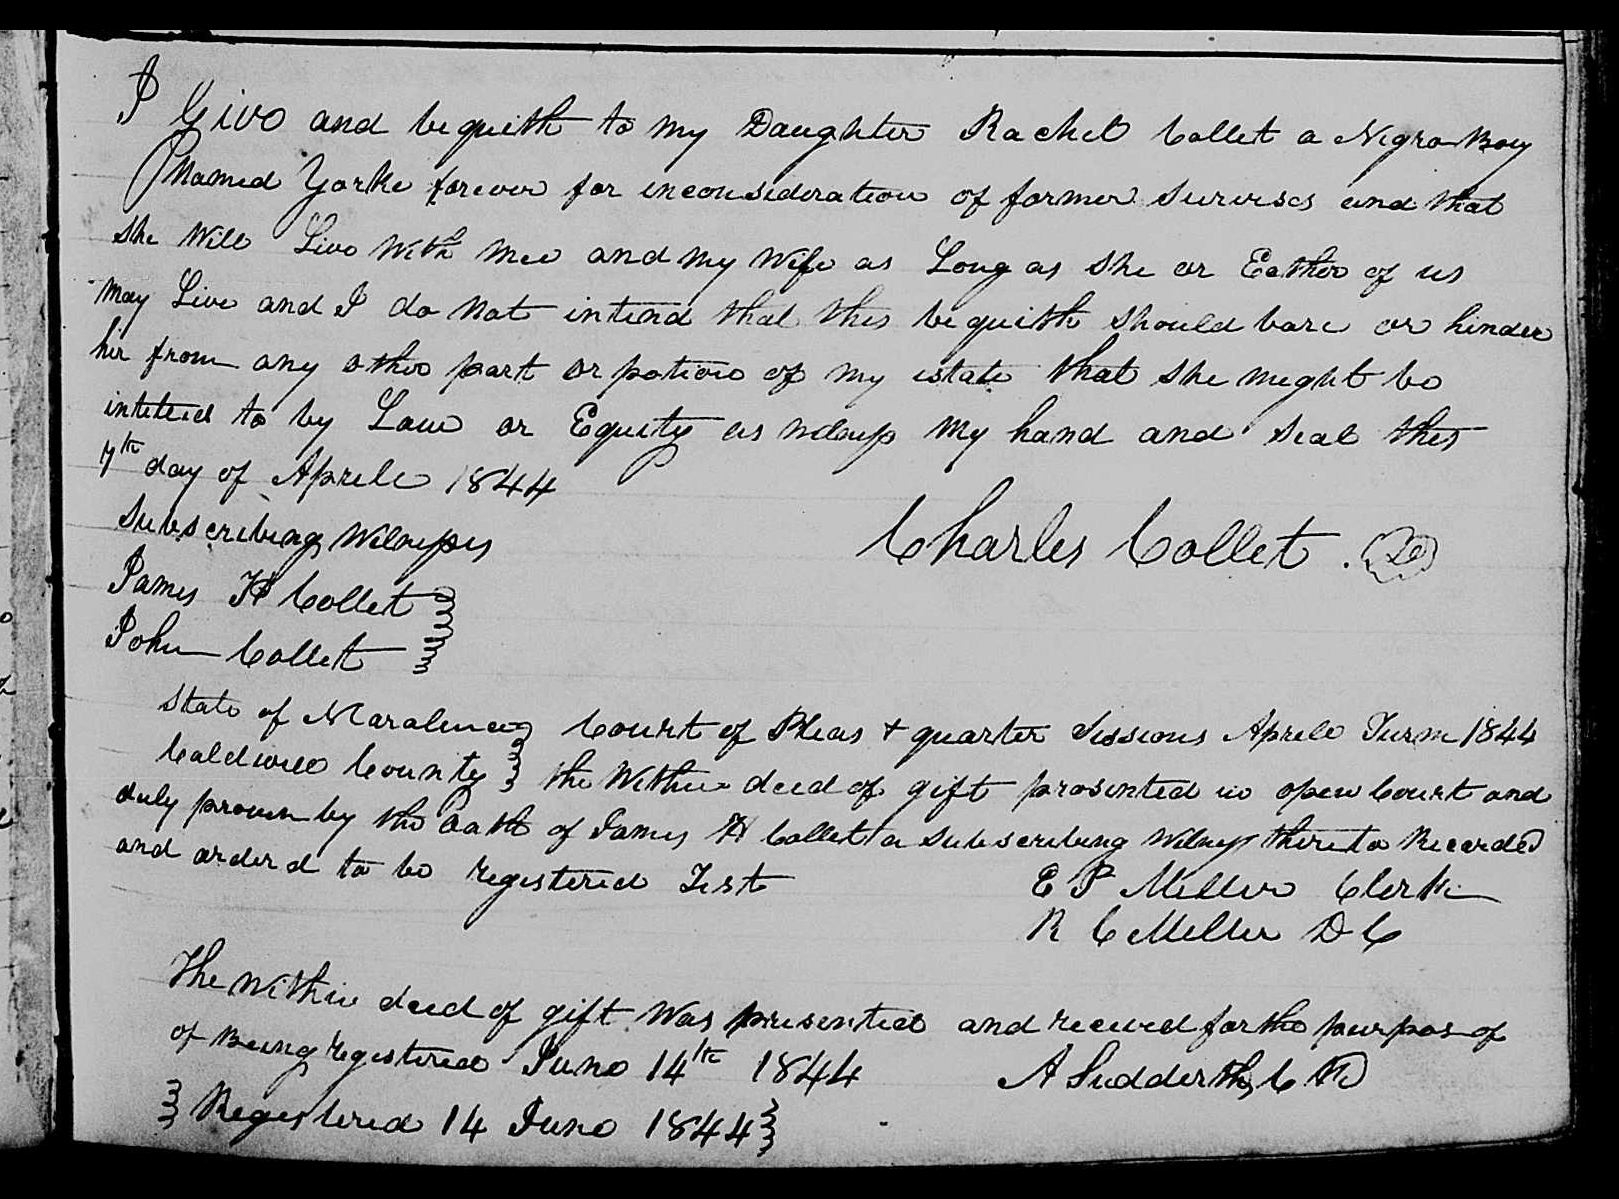 I Give and bequith to my Daughter Rachel Collet a Negro Boy
Named Yorke forever for inconsideration of former Survises and that
she Will Live With mee and my Wife as Long as she or Eather of us
May Live and I do Not intend that this bequith should bare or hinder
her from any other part or potion of my estate that she meght be
intitled to by Law or Equity as witness my hand and seal this
7th day of Aprile 1844
Subscribing Witnesses
Charles Collet
James H Collet
John Collet
State of N Caralina Court of Pleas + quarter Sessions Aprile Turm 1844
Caldwell County the Within deed of gift prosented in open Court and
duly proven by the Oath of James H Collet a Subscribing Witness thereto Recorded
and orderd to be registered Test
E P Miller Clerk
R C Miller D C
The Within deed of gift Was presented and receivd for the purpos of
of Being registered June 14th 1844 A Sudderth
Registered 14 June 1844